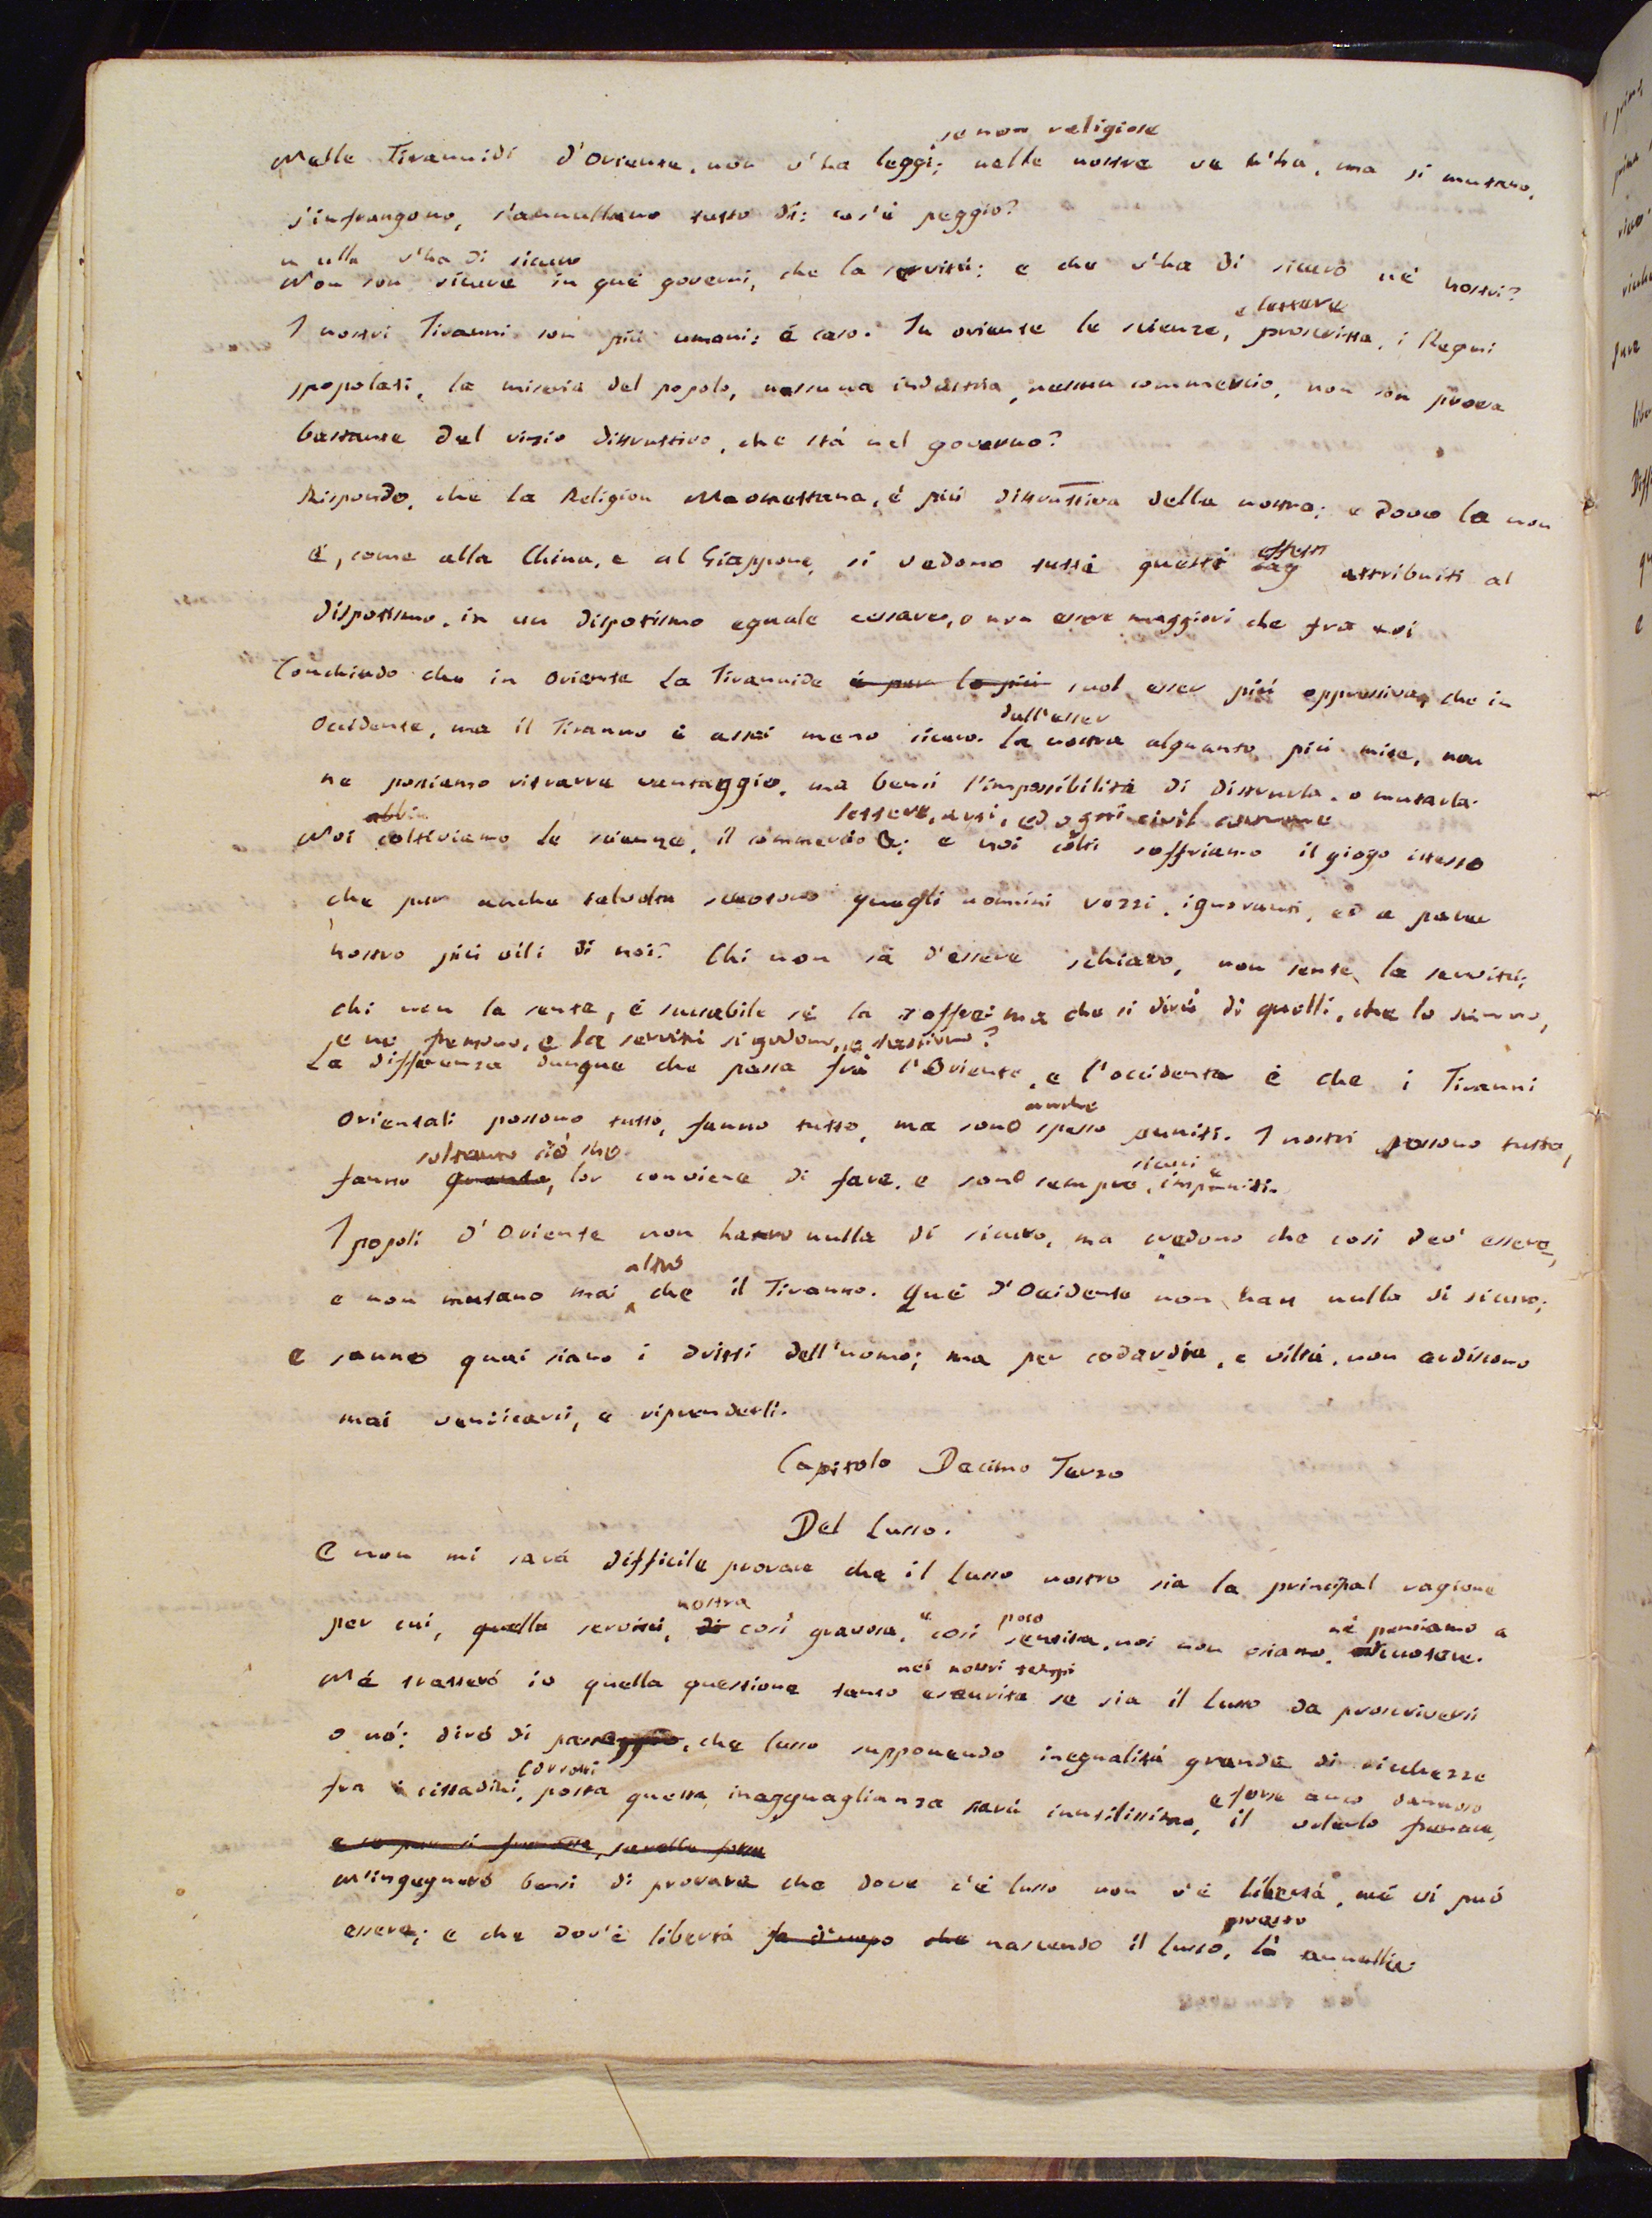 se non religiose
Nelle Tirannidi d'Oriente, non v'ha leggi; nelle nostre ve n'ha, ma si mutano,
s'infrangono, s'annullano tutto dì: cos'è peggio?
nulla v'ha di sicuro
Non son sicure in què governi, che la servitù; e che v'ha di sicuro nè nostri?
e lettere
I nostri Tiranni son più umani: è caso. In oriente le scienze, proscritte, i Regni
spopolati, la miseria del popolo, nessuna industria, nessun commercio, non son prova
bastante del vizio distruttivo, che stà nel governo?
Rispondo, che la Religion Maomettana, è più distruttiva della nostra; e dove la non
effetti
è, come alla China, e al Giappone, si vedono tutti questi attribuiti al
dispotismo, in un dispotismo eguale cessare, o non esser maggiori che fra noi
Conchiudo che in Oriente la Tirannide è per lo più suol esser più oppressiva, che in
dall'esser
Occidente, ma il Tiranno è assai meno sicuro. la nostra alquanto più mite, non
ne possiamo ritrarre vantaggio, ma bensì l'impossibilità di distrurla, o mutarla.
lettere, arti, ed ogni civil
Noi coltiviamo le scienze, il commercio &; e noi colti soffriamo il giogo istesso
che pur anche talvolta scuotono quegli uomini rozzi, ignoranti, ed a parer
nostro più vili di noi? Chi non sà d'essere schiavo, non sente la servitù;
chi non la sente, è scusabile se la soffre: ma che si dirà di quelli, che lo sanno,
e ne fremono, e la servitù si godono, e tacciono?
La differenza dunque che passa frà l'Oriente, e l'occidente è che i Tiranni
anche
Orientali possono tutto, fanno tutto, ma sono spesso puniti. I nostri possono tutto,
soltanto ciò che sicuri e
fanno quanto, lor conviene di fare, e sono sempre, impuniti.
I popoli d'Oriente non hanno nulla di sicuro, ma credono che così deo' essere,
altro
e non mutano mai che il Tiranno. Què d'Occidente non han nulla di sicuro;
e sanno quai siano i dritti dell'uomo; ma per codardia, e viltà, non ardiscono
mai vendicarli, e riprenderli.
Capitolo Decimo Terzo
Del Lusso.
E non mi sarà difficile provare che il lusso nostro sia la principal ragione
nostra e poco nè pensiamo a
per cui, quella servitù, di così gravosa, così sentita, noi non osiamo, scuotere.
nei nostri tempi
Nè tratterò io quella questione tanto esaurita se sia il lusso da proscriversi
o nò: dirò di passaggio, che lusso supponendo inegualità grande di ricchezze
corrotti e forse anco dannoso
fra i cittadini, posta questa inagguaglianza sarà inutilissimo, il volerlo frenare,
e se pur si
M'ingegnerò bensì di provare che dove c'è lusso non v'è libertà, nè vi può
presto
essere; e che dov'è libertà che nascendo il lusso, la annulla.